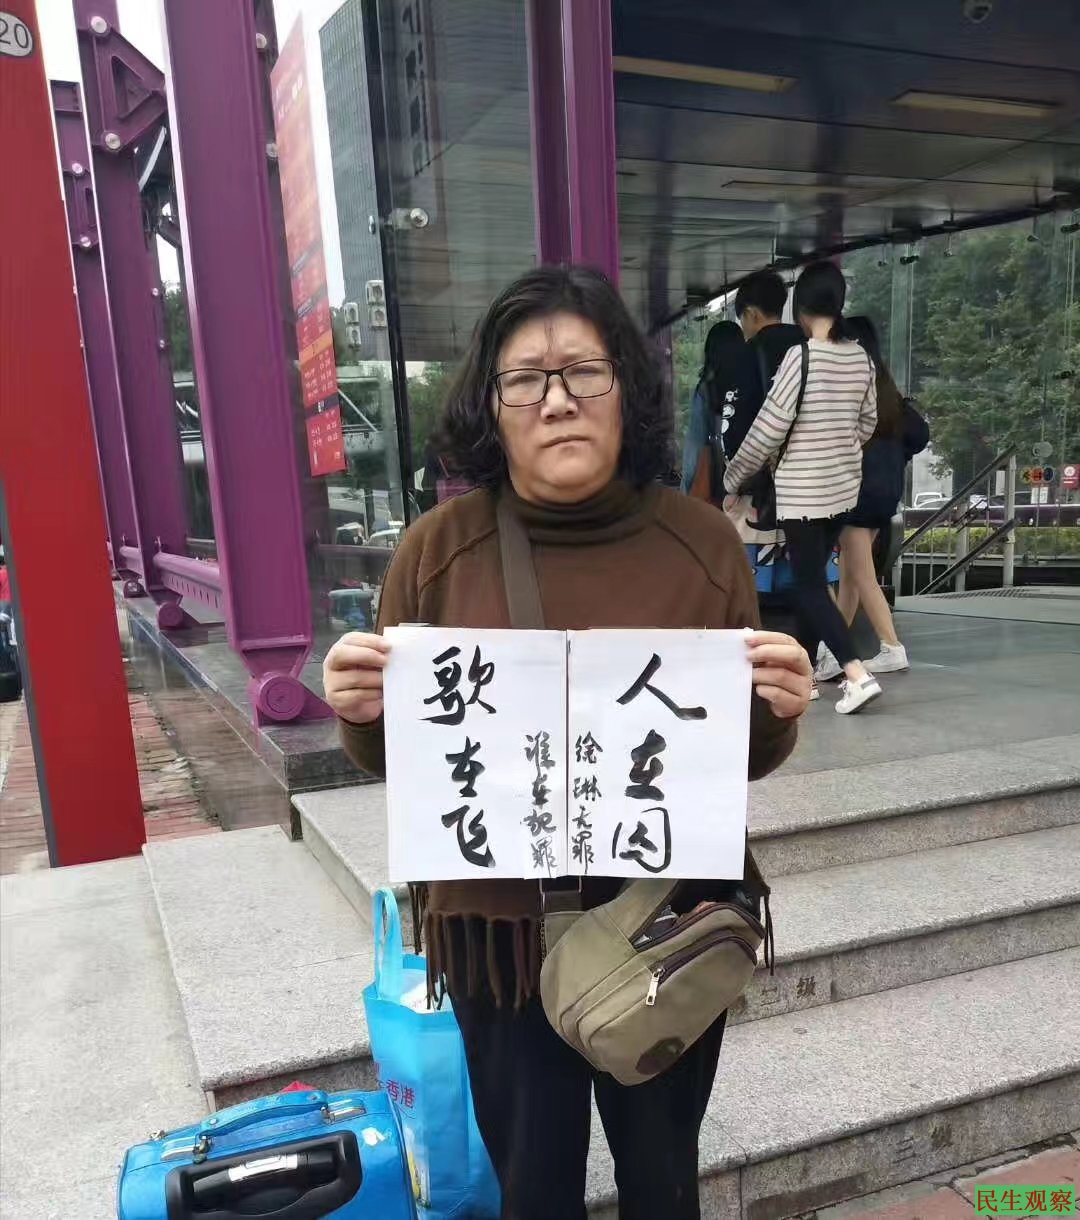 20
人在囚
徐琳无罪
谁在犯罪
歌在飞
香港
二级
三级
民生观察